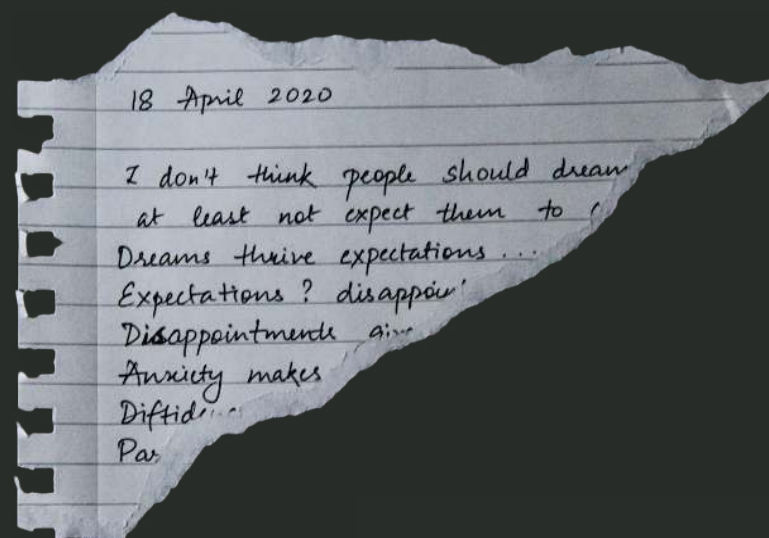 18 April 2020
I don't think people should dream
at least not expect them to
Dreams thrive expectations ...
Expectations ? disappoin
Disappointments give
Anxiety makes